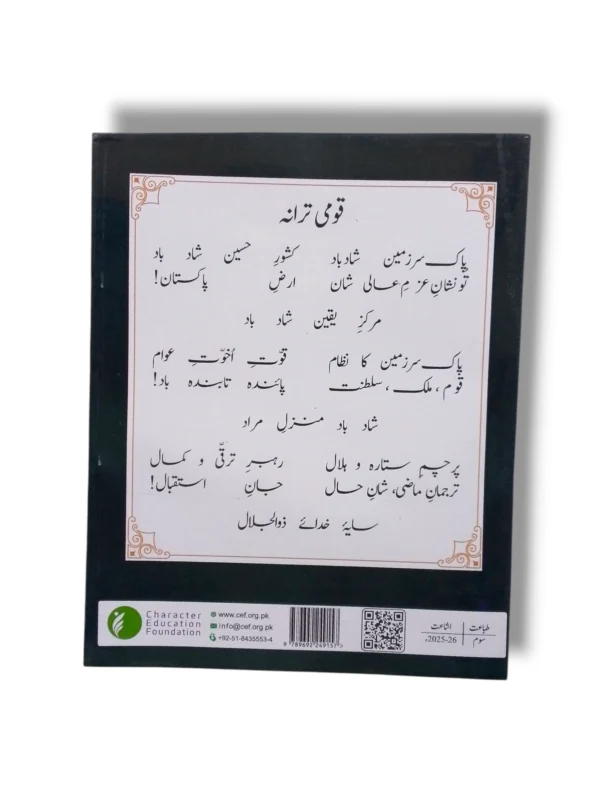 قومی ترانہ
پاک سرزمین شاد باد کشورِ حسین شاد باد
تو نشانِ عزمِ عالی شان ارضِ پاکستان!
مرکزِ یقین شاد باد
پاک سرزمین کا نظام قوّتِ اُخوّتِ عوام
قوم، ملک، سلطنت پائندہ تابندہ باد!
شاد باد منزلِ مراد
پرچمِ ستارہ و ہلال رہبرِ ترقّی و کمال
ترجمانِ ماضی، شانِ حال جانِ استقبال!
سایۂ خدائے ذوالجلال
Character
Education
Foundation
www.cef.org.pk
info@cef.org.pk
+92-51-8435553-4
9 789692 249157 >
طباعت اشاعت
سوم 2025-26ء